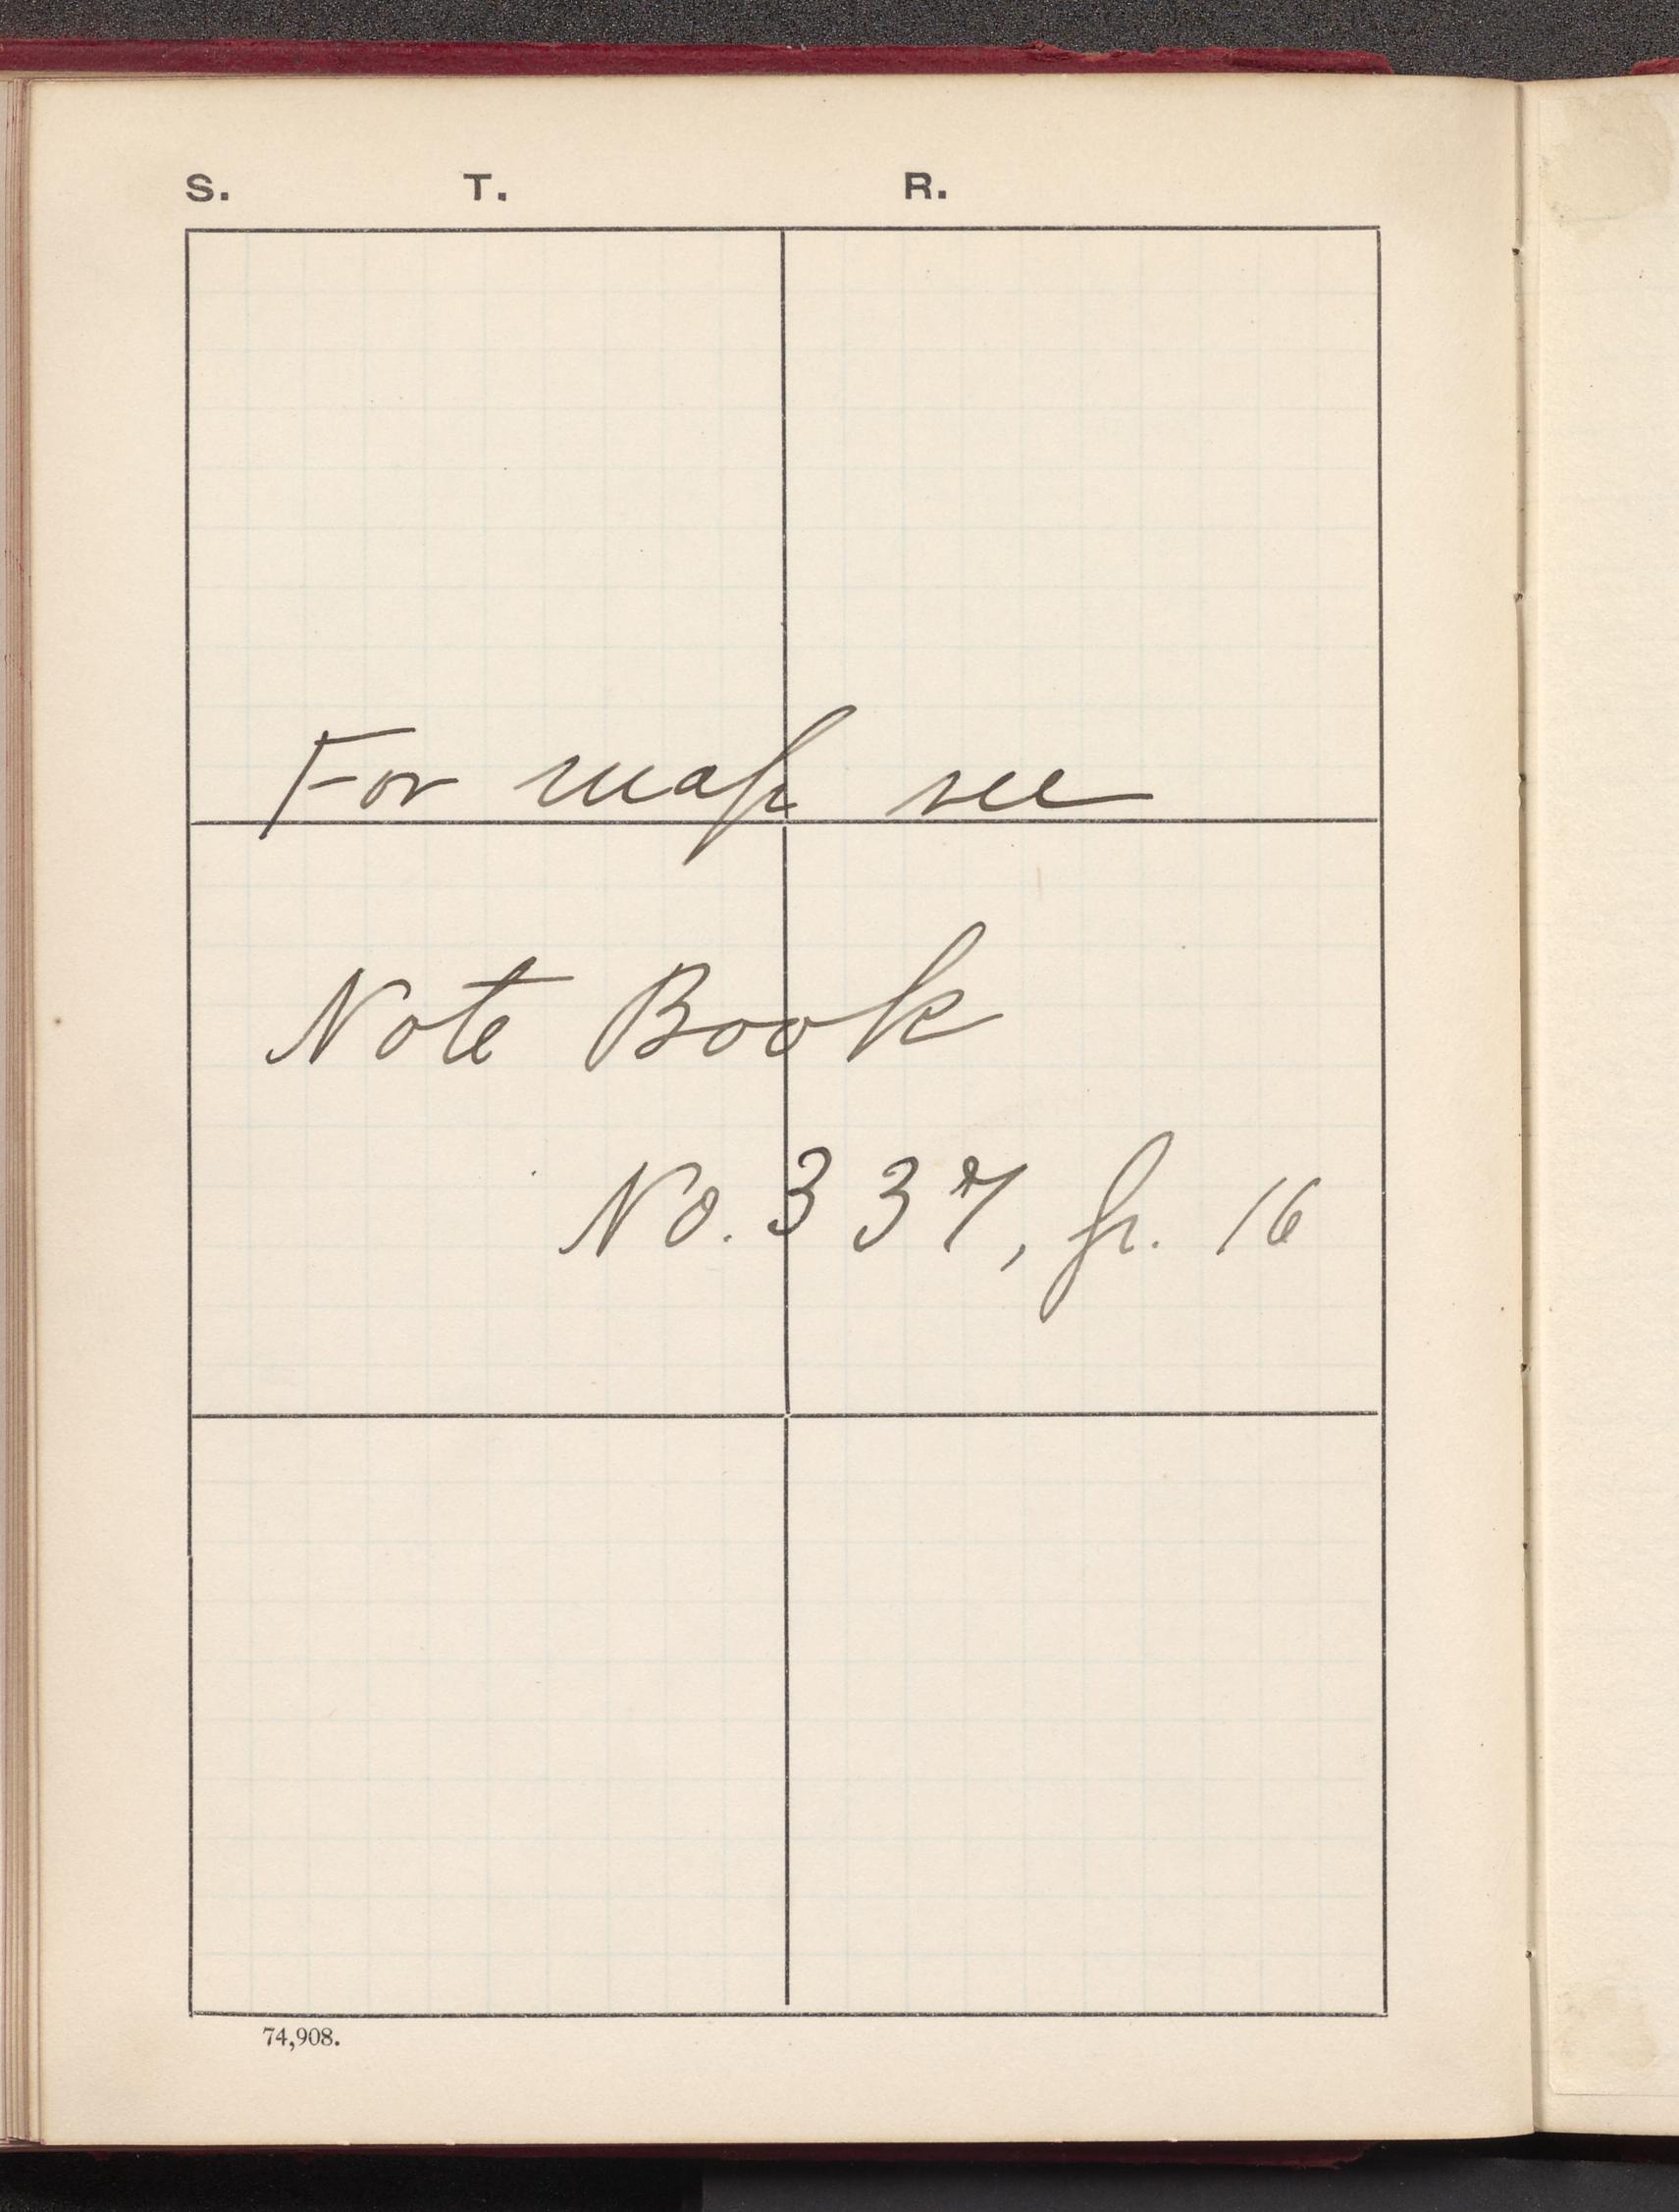 S. T. R.
For map see
Note Book
No. 337, p. 16
74,908.